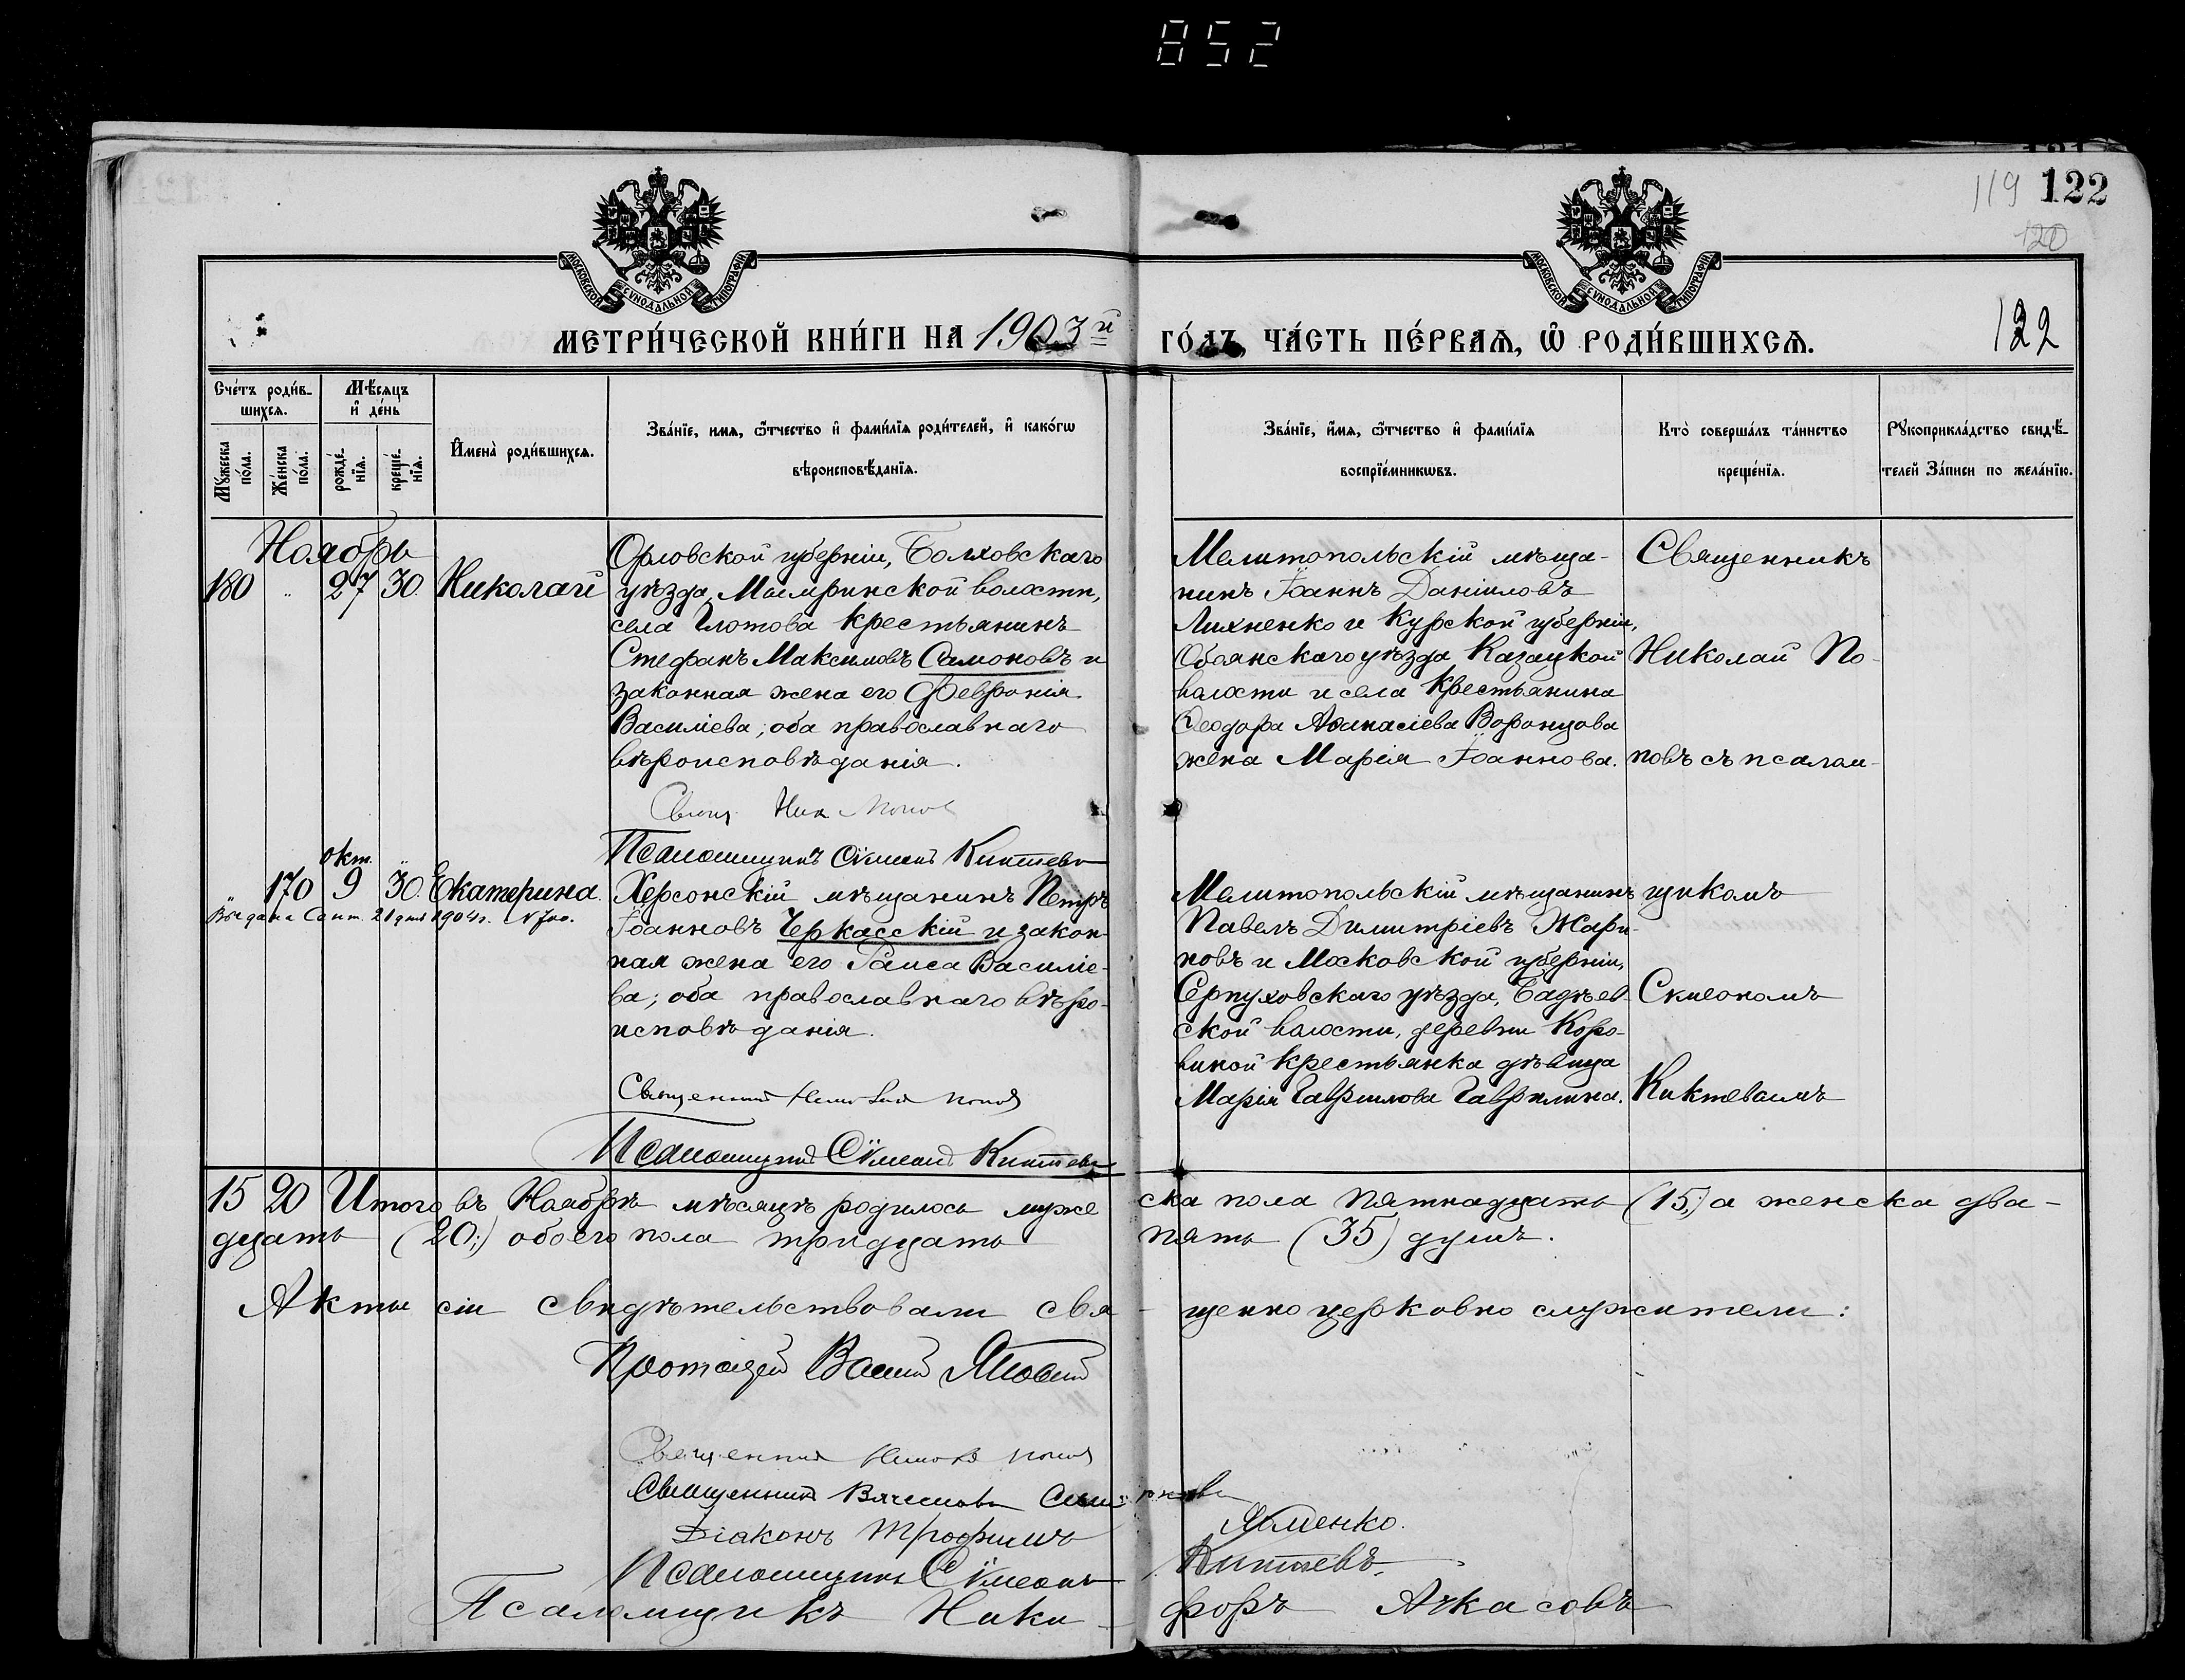 852
119 122
120
МОСКОВСКОЙ СѴНОДАЛЬНОЙ ТИПОГРАФІИ
МОСКОВСКОЙ СѴНОДАЛЬНОЙ ТИПОГРАФІИ
МЕТРИ́ЧЕСКОЙ КНИ́ГИ НА 1903й ГО́ДЪ, ЧА́СТЬ ПЕ́РВАѦ, Ѡ РОДИ́ВШИХСѦ.
122
Сче́тъ роди́в-
шихсѧ.
Мѣ́сѧцъ
и҆ де́нь
Мꙋ́жеска
по́ла.
Же́нска
по́ла.
рожде́-
нїѧ.
креще́-
нїѧ.
И҆мена̀ роди́вшихсѧ.
Зва́нїе, и́мѧ, ѻ҆́тчество и҆ фами́лїѧ роди́телей, и҆ како́гѡ
вѣроисповѣ́данїѧ.
Зва́нїе, и҆́мѧ, ѻ҆́тчество и҆ фами́лїѧ
воспрїе́мникѡвъ.
Кто̀ соверша́лъ та́инство
креще́нїѧ.
Рꙋкоприкла́дство свидѣ́-
телей За́писи по жела́нїю.
Ноябрь
180 " 27 30 Николай
Орловской губерніи, Болховскаго
уѣзда, Маимринской волости,
села Глотова крестьянинъ
Стефанъ Максимовъ Самоновъ и
законная жена его Февронія
Василіева; оба православнаго
вѣроисповѣданія.
Свящ. Ник Попов
Псаломщикъ Сѵмеонъ Киктевъ
Мелитопольскій мѣща-
нинъ Іоаннъ Даніиловъ
Лихненко и Курской губерніи,
Обоянскаго уѣзда, Казацкой
волости и села крестьянина
Ѳеодора Аѳанасіева Воронцова
жена Марія Іоаннова.
Священникъ
Николай По-
повъ съ псалом-
щикомъ
Сѵмеономъ
Киктевымъ
окт.
" 170 9 30. Екатерина.
Выдана 21 1904 г. № 700.
Херсонскій мѣщанинъ Петръ
Іоанновъ Черкасскій и закон-
ная жена его Раиса Василіе-
ва; оба православнаго вѣро-
исповѣданія.
Священник Николай Попов
Псаломщикъ Сѵмеонъ Киктевъ
Мелитопольскій мѣщанинъ
Павелъ Димитріевъ Жари-
ковъ и Московской губерніи,
Серпуховскаго уѣзда, Бадѣев-
ской волости, деревни Коро-
виной крестьянка дѣвица
Марія Гавриилова Гаврилина.
15 20 Итого въ Ноябрѣ мѣсяцѣ родилось муже
ска пола пятнадцать (15;) а женска два-
дцать (20;) обоего пола тридцать
пять (35) душъ.
Акты сіи свидѣтельствовали свя-
щенно церковно служители:
Протоіерей
Священник Попов
Священникъ Вячеславъ
Діаконъ Трофимъ Яименко.
Псаломщикъ Сѵмеонъ Киктевъ.
Псаломщикъ Ники-
форъ Ачкасовъ